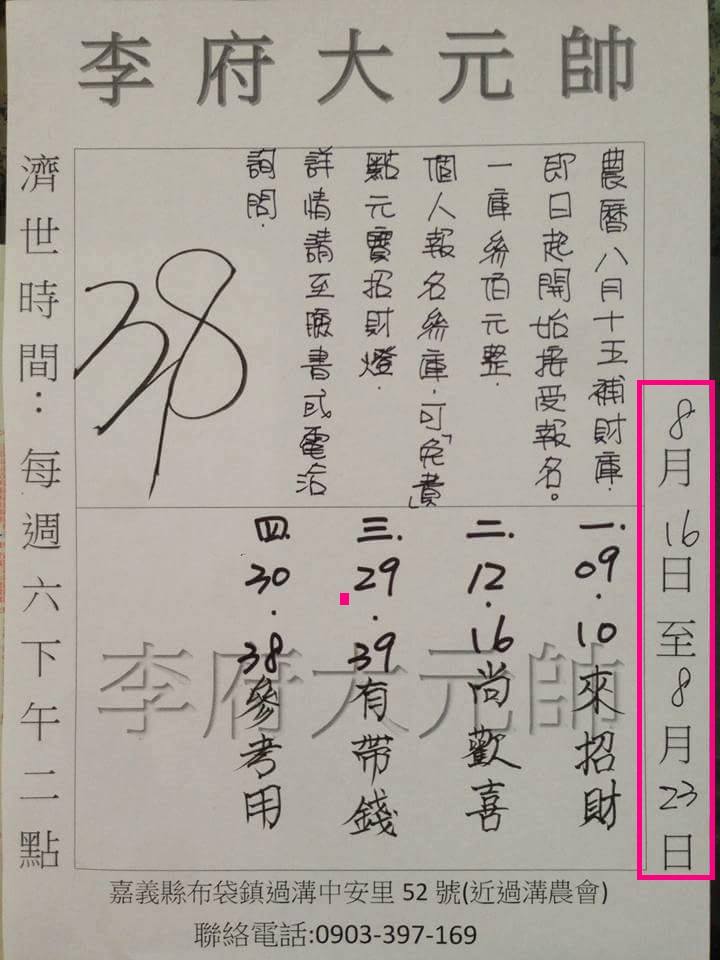 李府大元帥
8月16日至8月23日
農曆八月十五補財庫.
即日起開始接受報名。
一庫參佰元整.
個人報名參庫.可「免費」
點元寶招財燈.
詳情請至臉書或電洽
詢問.
38
一.09.10來招財
二.12.16尚歡喜
三.29.39有帶錢
四.30.38參考用
李府大元帥
濟世時間:每週六下午二點
嘉義縣布袋鎮過溝中安里 52 號(近過溝農會)
聯絡電話:0903-397-169